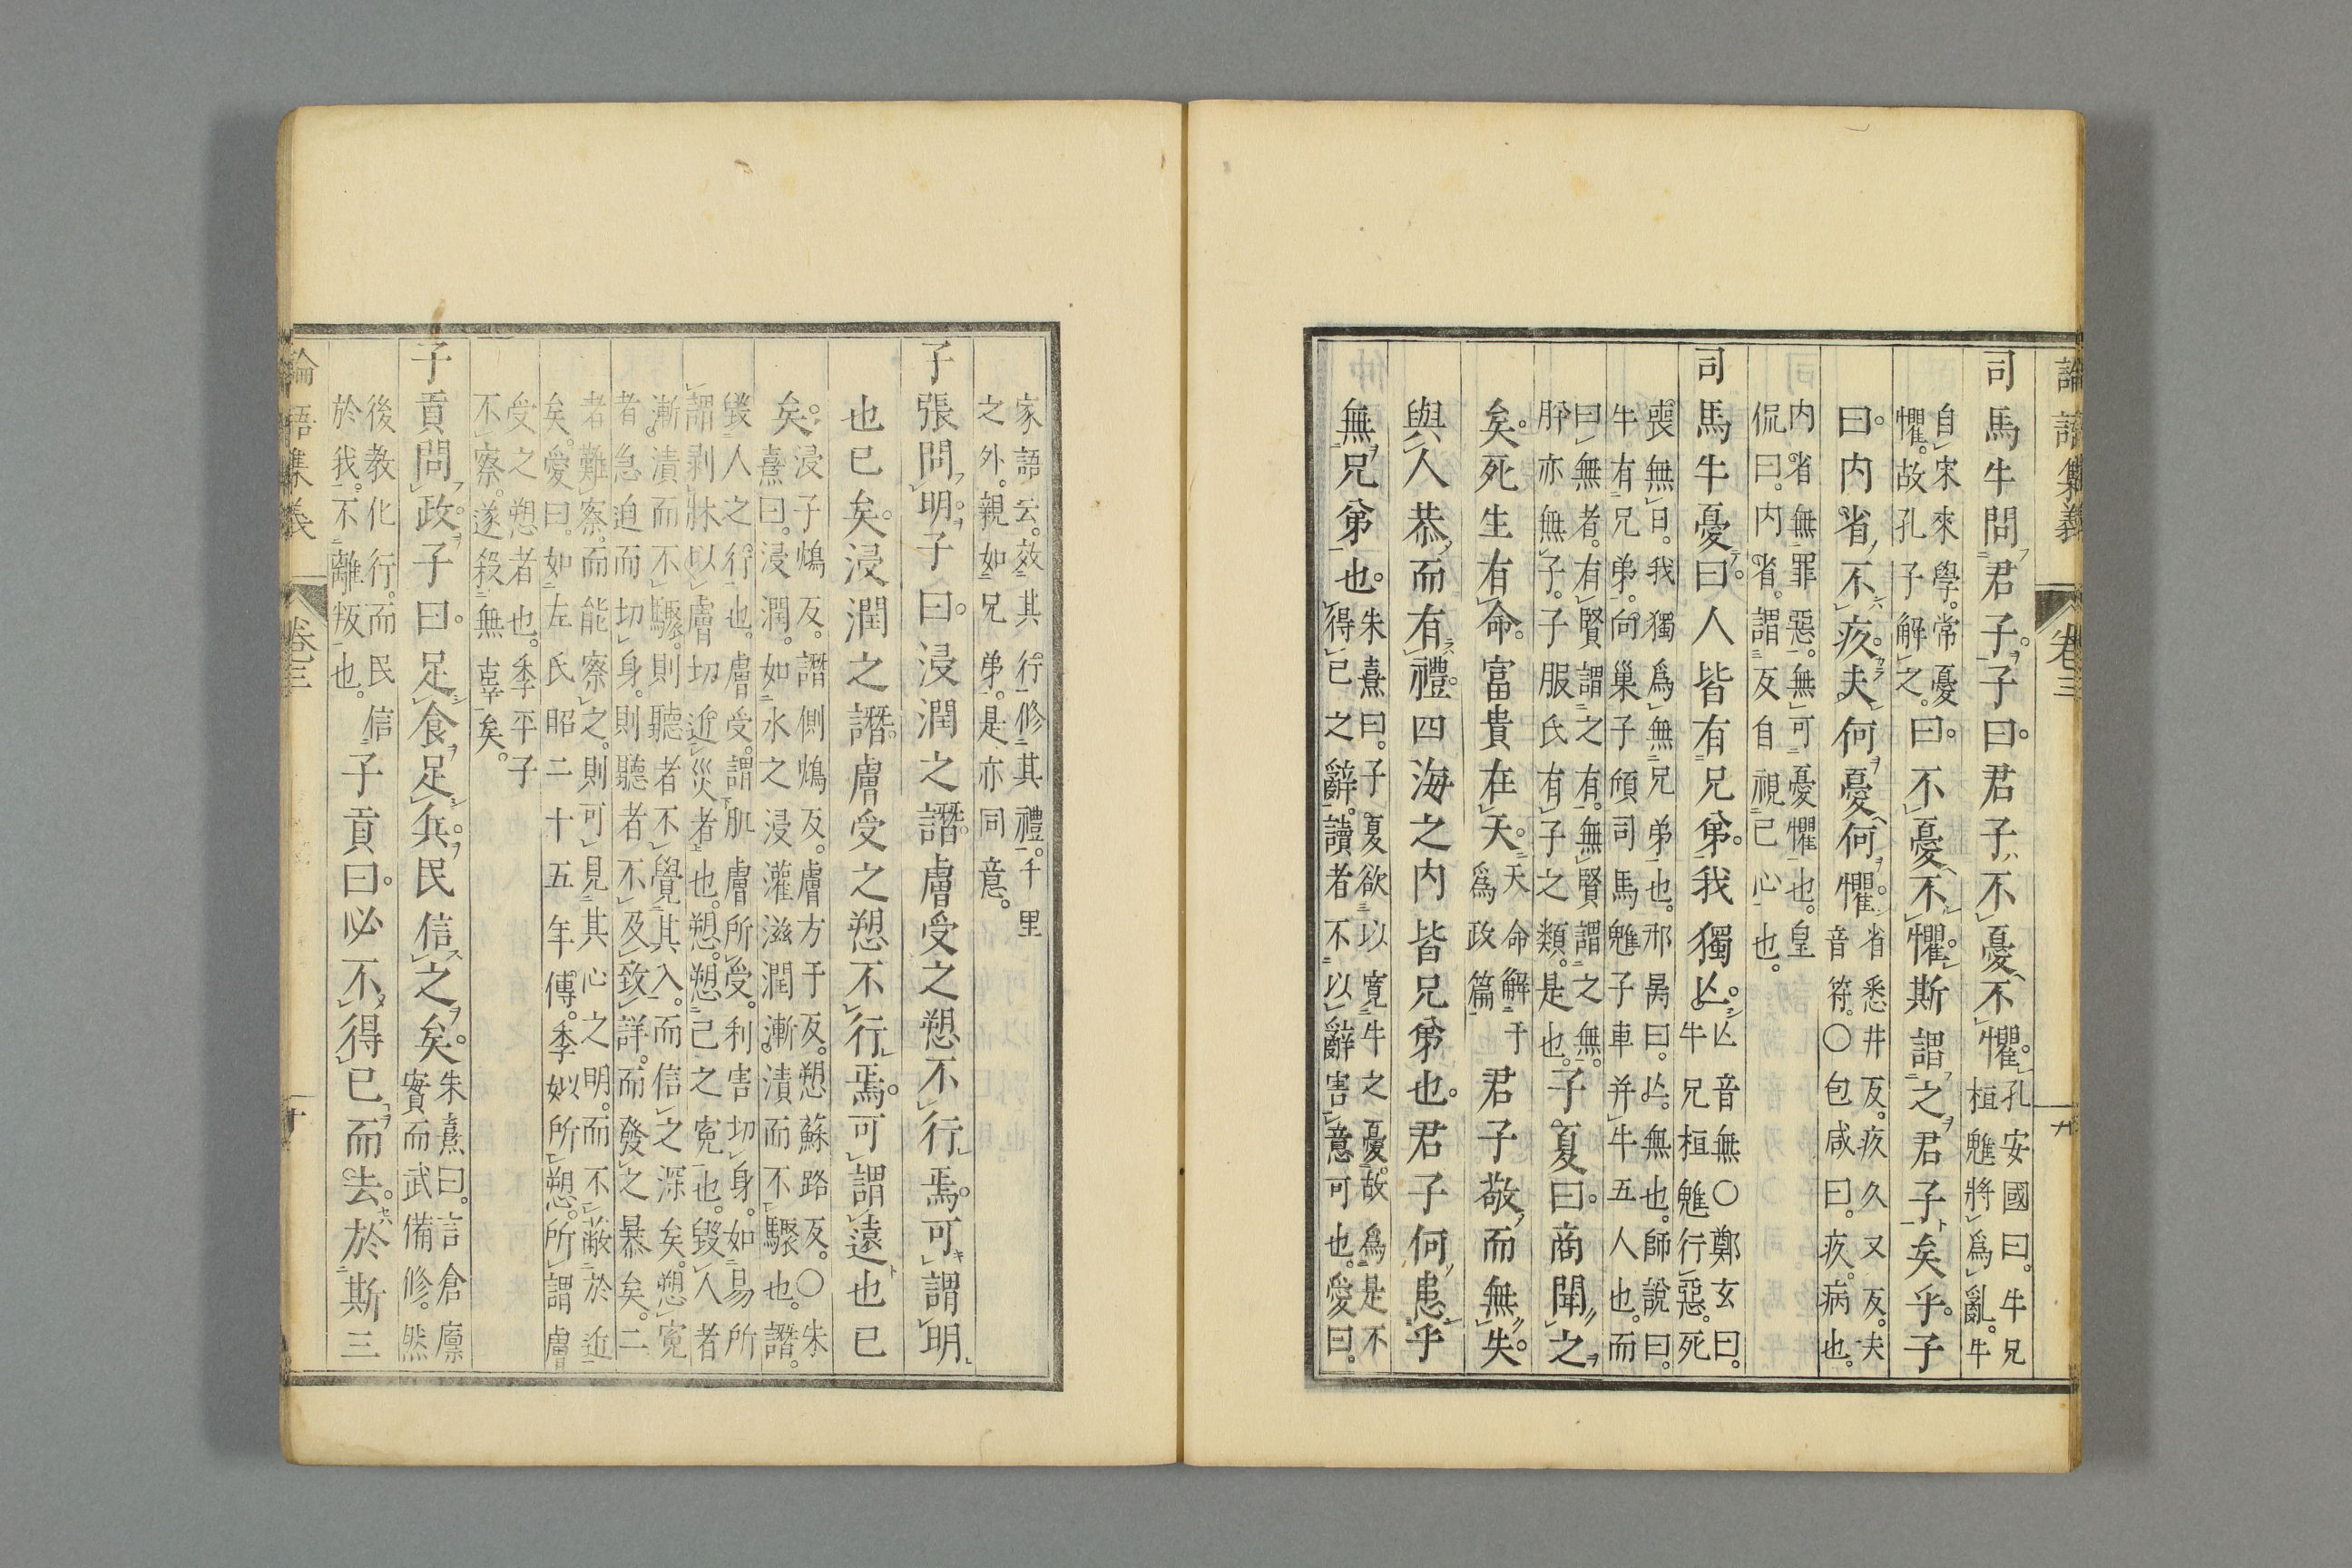 論語集義 卷三 九
司馬牛問君子。子曰。君子不憂不懼。孔安國曰。牛兄桓魋將爲亂。牛
自宋來學。常憂懼。故孔子解之。曰。不憂不懼。斯謂之君子矣乎。子
曰。內省不疚。夫何憂何懼。省悉井反。疚久又反。夫音符。○包咸曰。疚。病也。
內省無罪惡。無可憂懼也。皇侃曰。內省。謂反自視己心也。
司馬牛憂曰。人皆有兄弟。我獨亾。亾音無○鄭玄曰。牛兄桓魋行惡。死
喪無日。我獨爲無兄弟也。邢昺曰。亾。無也。師說曰。牛有兄弟。向巢子頎司馬魋子車并牛五人也。而
曰無者。有賢謂之有。無賢謂之無。卽亦無子。子服氏有子之類。是也。子夏曰。商聞之
矣。死生有命。富貴在天。天命解于爲政篇君子敬而無失。
與人恭而有禮。四海之內皆兄弟也。君子何患乎
無兄弟也。朱熹曰。子夏欲以寬牛之憂。故爲是不得已之辭。讀者不以辭害意可也。愛曰。
家語云。效其行修其禮。千里之外。親如兄弟。是亦同意。
子張問明。子曰。浸潤之譖。膚受之愬不行焉。可謂明
也已矣。浸潤之譖。膚受之愬不行焉。可謂遠也已
矣。浸子鴆反。譖側鴆反。膚方于反。愬蘇路反。○朱熹曰。浸潤。如水之浸灌滋潤漸漬而不驟也。譖。
毀人之行也。膚受。謂肌膚所受。利害切身。如易所謂剥牀以膚切近災者也。愬。愬己之寃也。毀人者
漸漬而不驟。則聽者不覺其入。而信之深矣。愬寃者急迫而切身。則聽者不及致詳。而發之暴矣。二
者難察。而能察之。則可見其心之明。而不蔽於近矣。愛曰。如左氏昭二十五年傳。季姒所愬。所謂膚
受之愬者也。季平子不察。遂殺無辜矣。
子貢問政。子曰。足食足兵。民信之矣。朱熹曰。言倉廩實而武備修。然
後教化行。而民信於我。不離叛也。子貢曰。必不得已而去。於斯三
論語集義 卷三 十